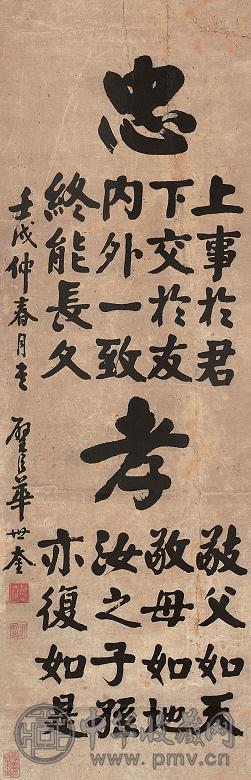 忠
上事於君
下交於友
内外一致
終能長久
孝
敬父如天
敬母如地
汝之子孫
亦復如是
壬戌仲春月 璧臣華世奎
中華收藏網
www.pmv.cn